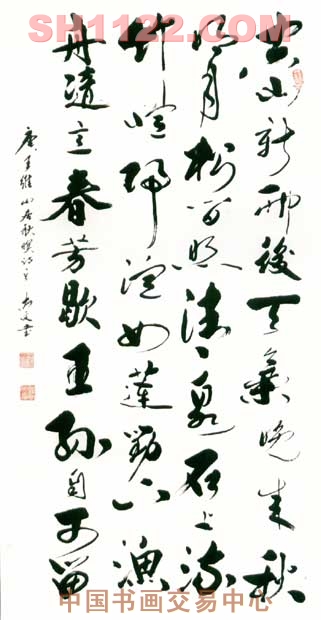 SH1122.COM
空山新雨後天氣晚来秋
明月松间照清泉石上流
竹喧歸浣女蓮動下漁
舟隨意春芳歇王孫自可留
唐王維山居秋暝詩書
中国书画交易中心